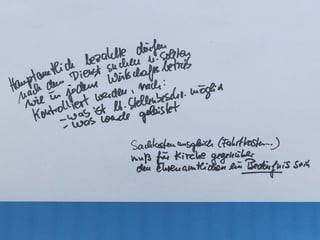 Hauptamtlich bezahlte dürfen
nach dem Dienst suchen u. sollten
wie in jedem Wirtschaftsbetrieb
kontrolliert werden, nach:
- was ist lt. Stellenbeschr. möglich
- was wurde geleistet
Sachkostenausgleich (Fahrtkosten...)
muß für Kirche gegenüber
den Ehrenamtlichen ein Bedürfnis sein